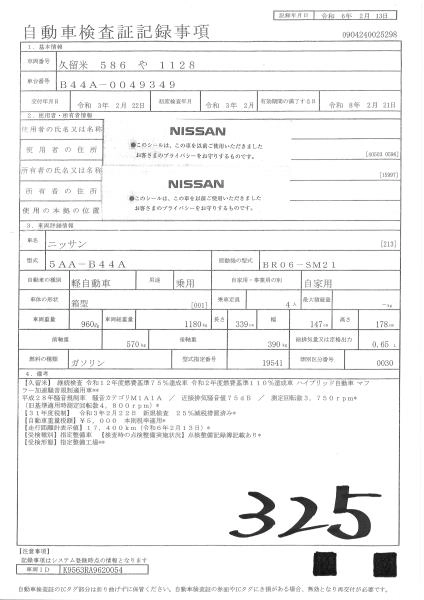 記録年月日 令和 6年 2月 13日
自動車検査証記録事項
0904240025298
1. 基本情報
車両番号 久留米 586 や 1128
車台番号 B44A-0049349
交付年月日 令和 3年 2月 22日 初度検査年月 令和 3年 2月 有効期間の満了する日 令和 8年 2月 21日
2. 使用者・所有者情報
使用者の氏名又は名称
NISSAN
使用者の住所
●このシールは、この車を以前ご使用いただきました
お客さまのプライバシーをお守りするものです。
[40503 0596]
所有者の氏名又は名称
[15997]
NISSAN
所有者の住所
●このシールは、この車を以前ご使用いただきました
お客さまのプライバシーをお守りするものです。
使用の本拠の位置
3. 車両詳細情報
車名 ニッサン [213]
型式 5AA-B44A 原動機の型式 BR06-SM21
自動車の種別 軽自動車 用途 乗用 自家用・事業用の別 自家用
車体の形状 箱型 [001] 乗車定員 4人 最大積載量 -kg
車両重量 960kg 車両総重量 1180kg 長さ 339cm 幅 147cm 高さ 178cm
前軸重 570kg 後軸重 390kg 総排気量又は定格出力 0.65 L
燃料の種類 ガソリン 型式指定番号 19541 類別区分番号 0030
4. 備考
【久留米】 継続検査 令和12年度燃費基準75%達成車 令和2年度燃費基準110%達成車 ハイブリッド自動車 マフ
ラー加速騒音規制適用車**
平成28年騒音規制車 騒音カテゴリM1A1A / 近接排気騒音値75dB / 測定回転数3,750rpm*
(旧基準適用時測定回転数4,800rpm)*
【31年度税制】 令和3年2月22日 新規検査 25%減税措置済み*
【自動車重量税額】¥5,000 本則税率適用*
【走行距離計表示値】17,400km(令和6年2月13日)*
【受検種別】指定整備車 【検査時の点検整備実施状況】点検整備記録簿記載あり*
【受検形態】指定整備工場*
325
【注意事項】
記録事項はシステム登録時点の情報となります
車両ID K9563RA9620054
自動車検査証のICタグ部分は折り曲げずに保管ください。自動車検査証の券面やICタグにき損がある場合、無効となり再交付が必要です。